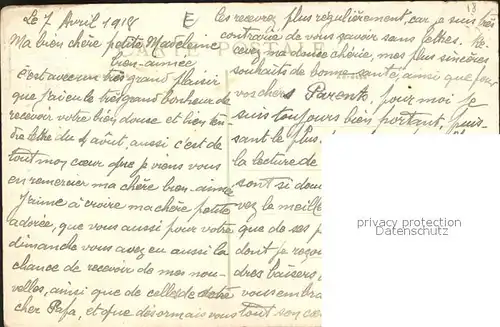 Le 7 Avril 1918
E
18
Ma bien chère petite Madeleine
bien-aimée
c'est avec un très grand plaisir
que j'ai eu le très grand bonheur de
recevoir votre bien douce et bien
lettre du 4 août, aussi c'est de
tout mon cœur que je viens vous
en remercier ma chère bien-aimée
J'aime à croire ma chère petite
adorée, que vous aussi pour votre
dimanche vous avez eu aussi la
chance de recevoir de mes nou-
velles, ainsi que de celles de notre
cher Papa, et que désormais vous
les recevrez plus régulièrement, car je suis très
contrarié de vous savoir sans lettres. Re-
cevez ma douce chérie, mes plus sincères
souhaits de bonne santé, ainsi que pour
vos chers Parents, pour moi je
suis toujours bien portant, puis-
sant le plus
la lecture de
sont si dou
vez le meille
que de ses p
dont je reço
dres baisers
vous embra
tout son cœ
privacy protection
Datenschutz